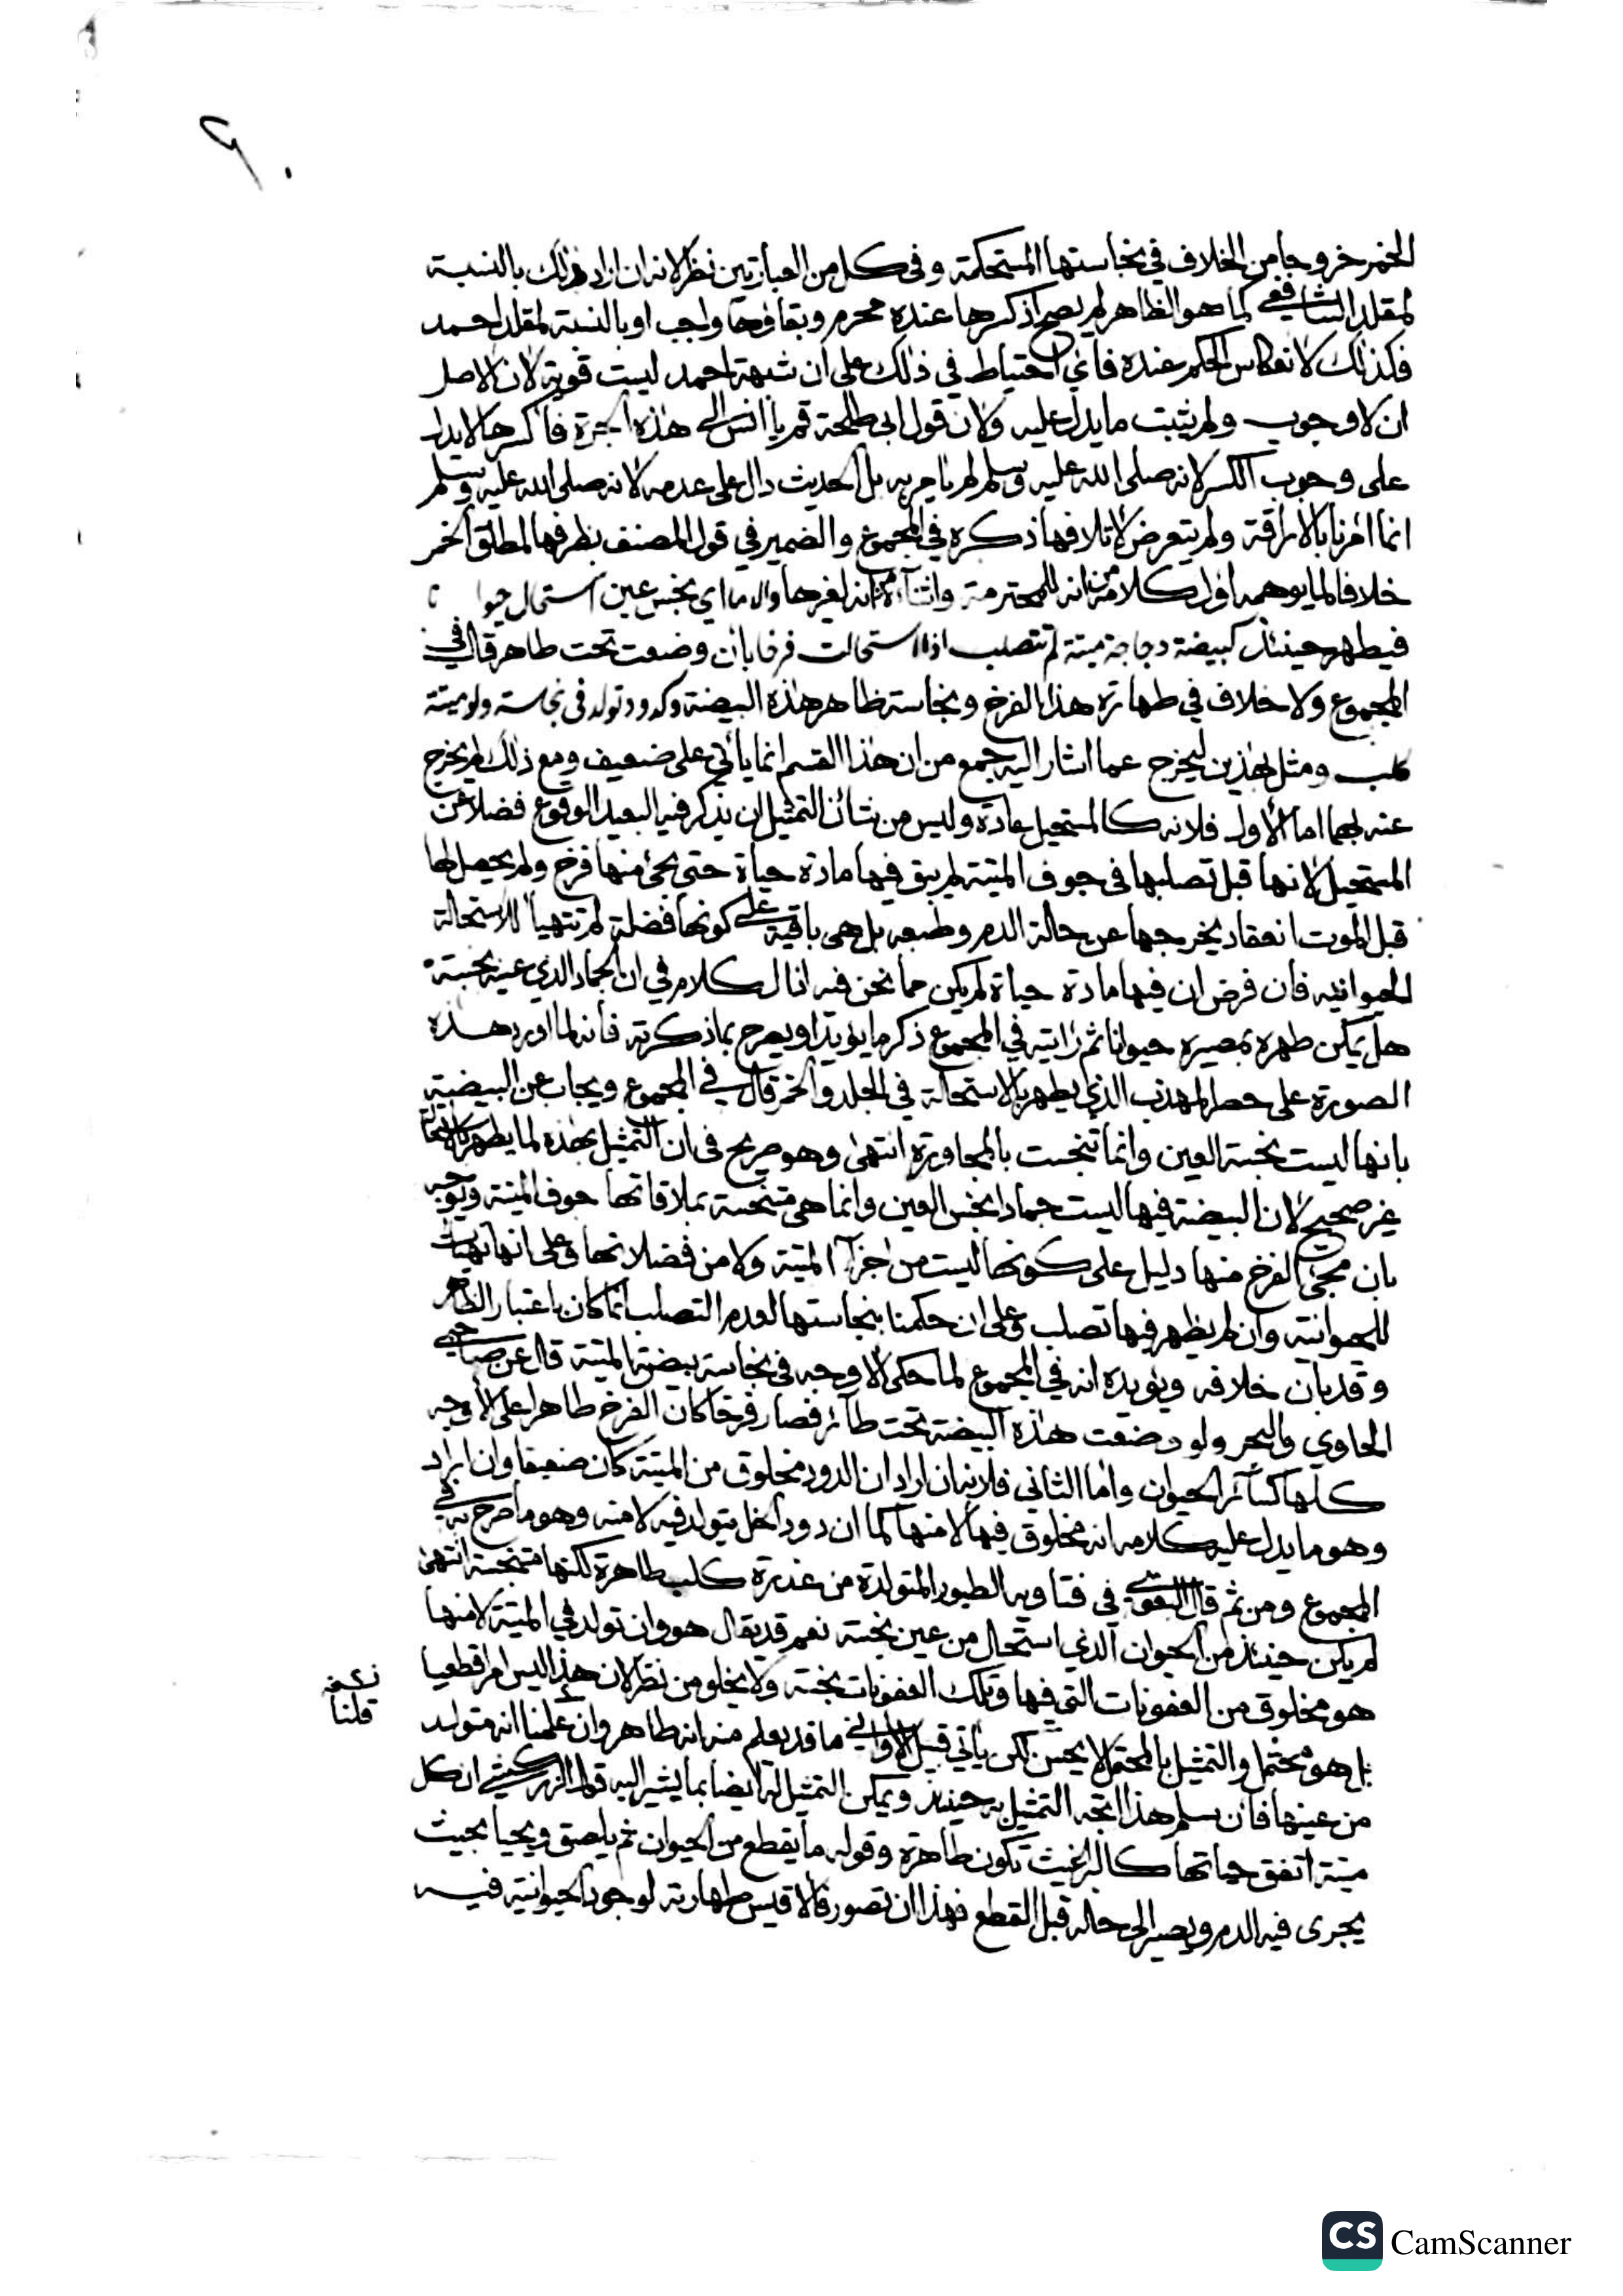 ٦٠
الخمر خروجا من الخلاف في نجاستها المستحكمة وفي كل من العبارتين نظر لانه ان اراد ذلك بالنسبة
لمقلد الشافعي كما هو الظاهر لم يصح اذ كسرها عنده محرم وبقاؤها واجب او بالنسبة لمقلد احمد
فكذلك لانعكاس الحكم عنده فاي احتياط في ذلك على ان شبهة احمد ليست قوية لان الاصل
ان لا وجوب ولم يثبت ما يدل عليه ولان قول ابي طلحة قم يا انس الى هذه الجرة فاكسرها لا يدل
على وجوب الكسر لانه صلى الله عليه وسلم لم يامر به بل الحديث دال على عدمه لانه صلى الله عليه وسلم
انما امرنا بالاراقة ولم يتعرض لاتلافها ذكره في المجموع والضمير في قول المصنف بظرفها لمطلق الخمر
خلافا لما يوهمه اول كلامه من انه للمحترمة واثناءه من انه لغيرها والا ما اي نجس عين استحال حيوا نا
فيطهر حينئذ كبيضة دجاجة ميتة لم تتصلب اذا استحالت فرخا بان وضعت تحت طاهر قال في
المجموع ولا خلاف في طهارة هذا الفرخ ونجاسة ظاهر هذه البيضة وكدود تولد في نجاسة ولو ميتة
كلب ومثل بهذين ليخرج عما اشار اليه جمع من ان هذا القسم انما ياتي على ضعيف ومع ذلك لم يخرج
عنه بهما اما الأول فلانه كالمستحيل عادة وليس من شأن التمثيل ان يذكر فيه البعيد الوقوع فضلا عن
المستحيل لانها قبل تصلبها في جوف الميتة لم يبق فيها مادة حياة حتى يجئ منها فرخ ولم يحصل لها
قبل الموت انعقاد يخرجها عن حالة الدم وطبعه بل هي باقية على كونها فضلة لم تتهيأ للاستحالة
الحيوانية فان فرض ان فيها مادة حياة لم يكن مما نحن فيه اذ الكلام في ان الجماد الذي عينه نجسة
هل يمكن طهره بمصيره حيوانا ثم رايته في المجموع ذكر ما يؤيد او يصرح بما ذكرته فانه لما اورد هذه
الصورة على حصر المهذب الذي يطهر بالاستحالة في الجلد والخمر قال في المجموع ويجاب عن البيضة
بانها ليست نجسة العين وانما تنجست بالمجاورة انتهى وهو صريح في ان التمثيل بهذه لما يطهر بالاستحالة
غير صحيح لان البيضة فيها ليست جمادا نجس العين وانما هي متنجسة بملاقاتها جوف الميتة ويوجه
بان مجئ الفرخ منها دليل على كونها ليست من اجزآ الميتة ولا من فضلاتها وعلى انها تهيأت
للحيوانية وان لم يظهر فيها تصلب وعلى ان حكمنا بنجاستها لعدم التصلب انما كان باعتبار الظاهر
وقد بان خلافه ويؤيده انه في المجموع لما حكى الاوجه في نجاسة بيضة الميتة قال عن صاحبي
الحاوي والبحر ولو وضعت هذه البيضة تحت طآئر فصار فرخا كان الفرخ طاهرا على الاوجه
كلها كسآئر الحيوان واما الثاني فلانه ان اراد ان الدود مخلوق من الميتة كان ضعيفا وان اراد
وهو ما يدل عليه كلامه انه مخلوق فيها لا منها كما ان دود الخل يتولد فيه لا منه وهو ما صرح به في
المجموع ومن ثم قال البغوي في فتاويه الطيور المتولدة من عذرة كلب طاهرة لكنها متنجسة انتهى
لم يكن حينئذ من الحيوان الذي استحال من عين نجسة نعم قد يقال هو وان تولد في الميتة لا منها
هو مخلوق من العفونات التي فيها وتلك العفونات نجسة ولا يخلو من نظر لان هذا ليس امرا قطعيا
بل هو محتمل والتمثيل بالمحتمل لا يحسن لكن ياتي قبيل الاواني ما قد يعلم منه انه طاهر وان علمنا انه متولد
نسخه
قلنا
من عينها فان سلم هذا اتجه التمثيل به حينئذ ويمكن التمثيل له ايضا بما يشير اليه قول الزركشي ان كل
ميتة اتفق حياتها كالبراغيث تكون طاهرة وقوله ما يقطع من الحيوان ثم يلصق ويحيا بحيث
يجرى فيه الدم ويصير الى حاله قبل القطع فهذا ان تصور فالاقيس طهارته لوجود الحيوانية فيه
CS CamScanner